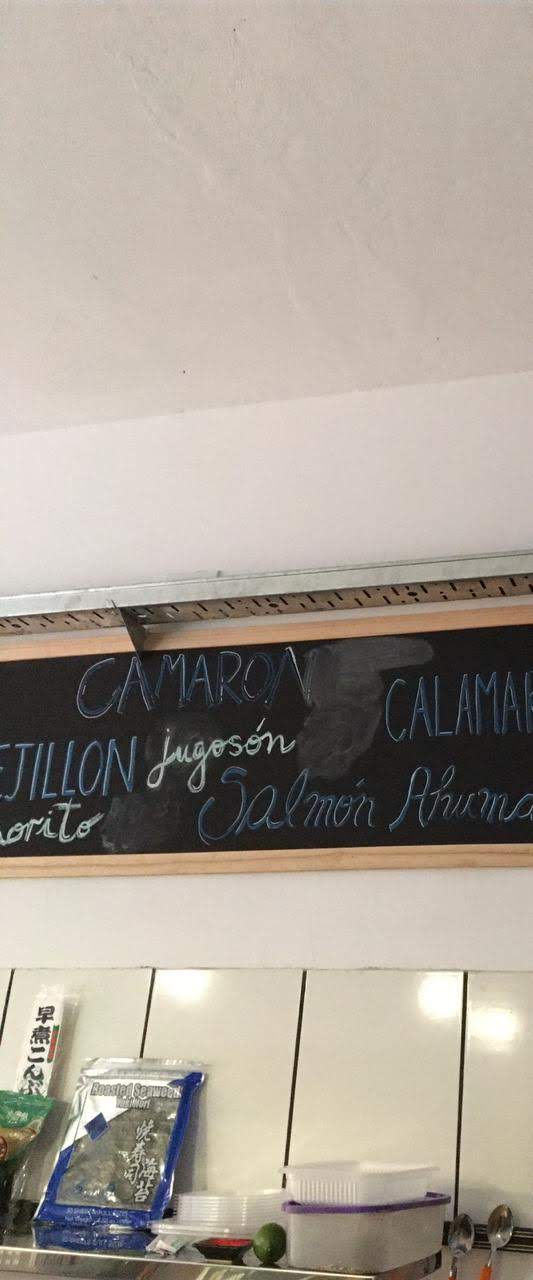 CAMARON
CALAMAR
EJILLON jugosón
orito Salmón Ahuma
早煮こんぶ
Roasted Seaweed
Yaki Nori
焼寿司海苔